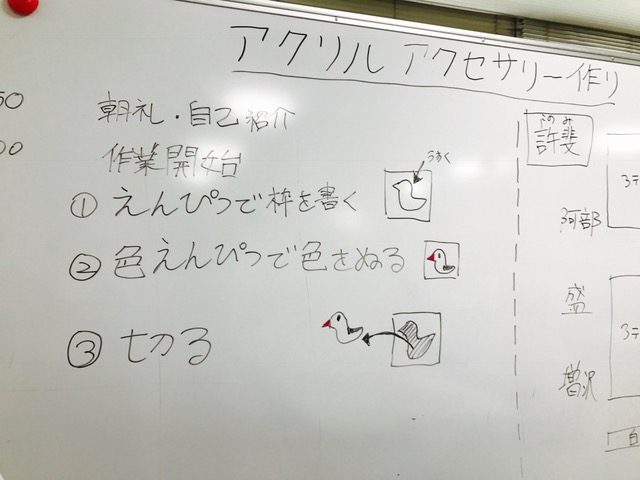 アクリル アクセサリー作り
50
朝礼・自己紹介
00
作業開始
① えんぴつで枠を書く
うすく
② 色えんぴつで色をぬる
③ 切る
このみ
許斐
3テ
阿部
盛
3テ
増沢
白